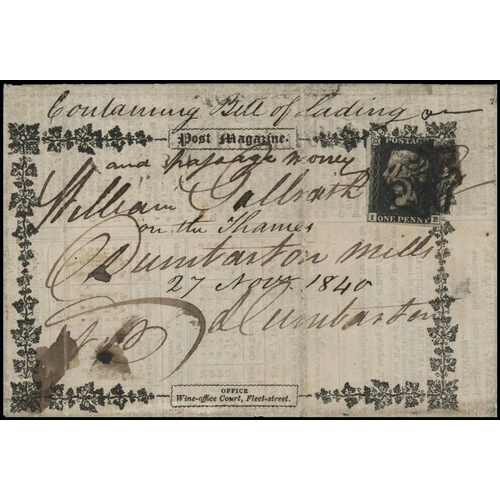 Containing Bill of Lading
Post Magazine.
and passage money
POSTAGE
William Galbraith
ONE PENNY
on the Thames
Dumbarton Mills
27 Novr 1840
Dumbarton
OFFICE
Wine-office Court, Fleet-street.